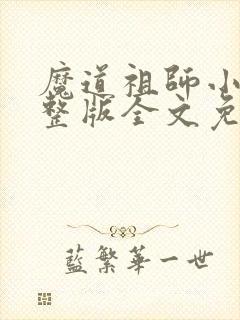 魔道祖師小
整版全文免
藍繁華一世